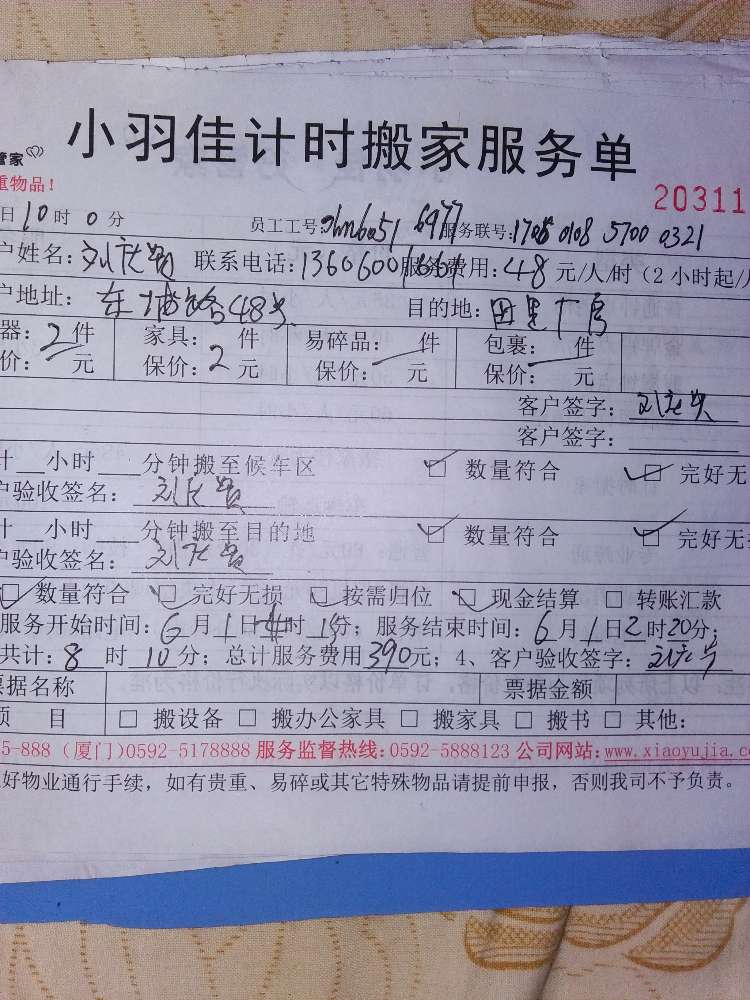 小羽佳计时搬家服务单
管家
重物品！
20311
日10时0分 员工工号: 6977 服务联号:1706 0108 5700 0321
户姓名: 联系电话:136060 服务费用:48元/人/时（2小时起/人
户地址:东浦路48号 目的地:
器:2件 家具: 件 易碎品: 件 包裹: 件
价: 元 保价:2元 保价: 元 保价: 元
客户签字:
客户签字:
计__小时___分钟搬至候车区 ☑ 数量符合 ☑ 完好无
户验收签名:
计__小时___分钟搬至目的地 ☑ 数量符合 ☑ 完好无损
户验收签名:
☑ 数量符合 ☑ 完好无损 ☑ 按需归位 ☑ 现金结算 □ 转账汇款
服务开始时间:6月1日 时15分；服务结束时间:6月1日2时20分；
共计:8时10分；总计服务费用390元；4、客户验收签字:
票据名称 票据金额
项 目 □ 搬设备 □ 搬办公家具 □ 搬家具 □ 搬书 □ 其他:
5-888（厦门）0592-5178888 服务监督热线:0592-5888123 公司网站:www.xiaoyujia.co
好物业通行手续，如有贵重、易碎或其它特殊物品请提前申报，否则我司不予负责。